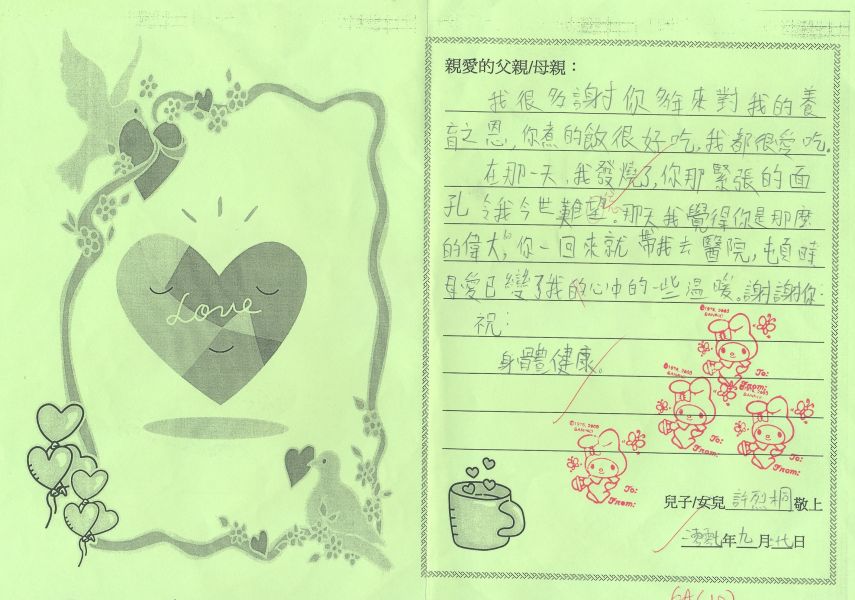 Love
親愛的父親/母親：
我很多謝你多年來對我的養
育之恩,你煮的飯很好吃,我都很愛吃。
在那一天,我發燒了,你那緊張的面
孔令我今世難忘。那天我覺得你是那麼
的偉大,你一回來就帶我去醫院,頓時
母愛已變了我的心中的一些溫暖。謝謝你。
祝:
身體健康。
©1976, 2005
SANRIO
To:
From:
©1976, 2005
SANRIO
To:
From:
To:
From:
©1976, 2005
SANRIO
To:
From:
兒子/女兒 許烈桐 敬上
年九月 日